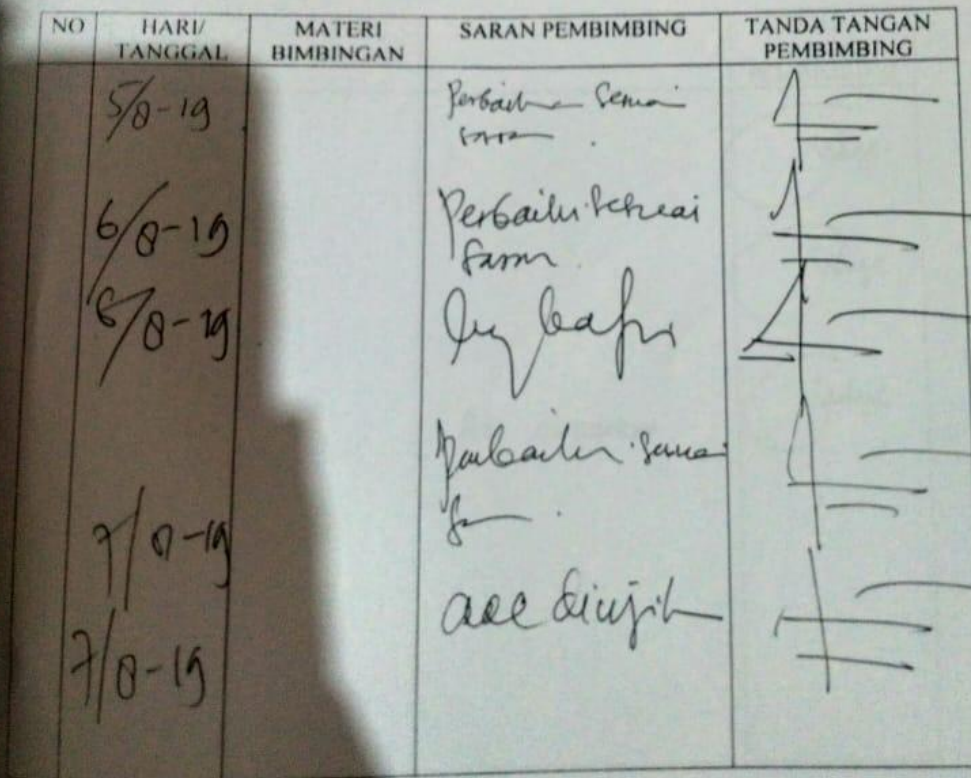 NO HARI/ TANGGAL MATERI BIMBINGAN SARAN PEMBIMBING TANDA TANGAN PEMBIMBING
5/8-19 Perbaikan sesuai
saran
6/8-19 Perbaiki sesuai
saran
6/8-19
Perbaiki sesuai
7/8-19
7/8-19 acc diujikan